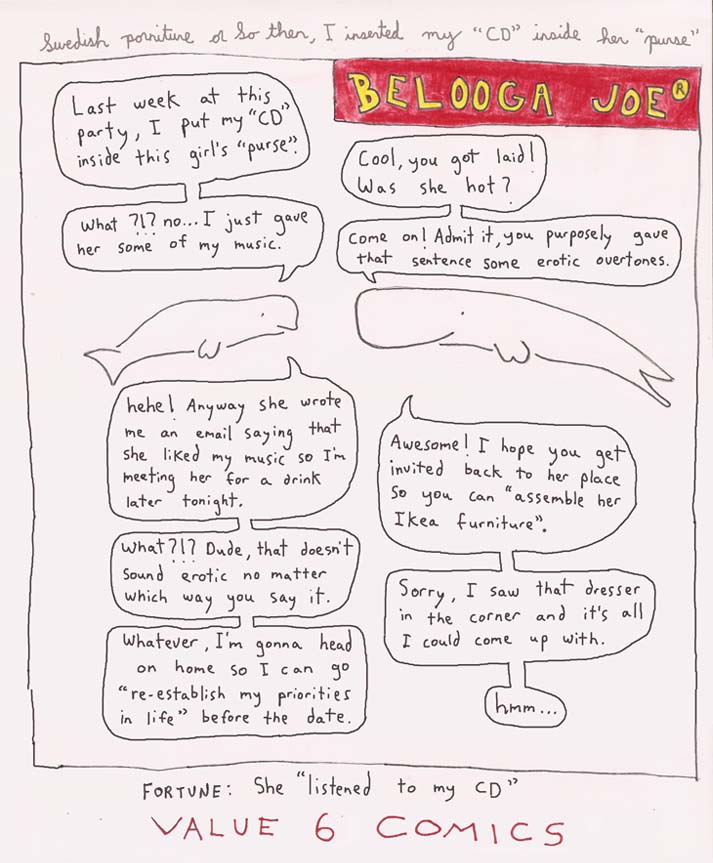 Swedish porniture or So then, I inserted my "CD" inside her "purse"
BELOOGA JOE®
Last week at this
party, I put my "CD"
inside this girl's "purse".
Cool, you got laid!
Was she hot?
What ?!? no... I just gave
her some of my music.
Come on! Admit it, you purposely gave
that sentence some erotic overtones.
hehe! Anyway she wrote
me an email saying that
she liked my music so I'm
meeting her for a drink
later tonight.
Awesome! I hope you get
invited back to her place
so you can "assemble her
Ikea furniture".
What?!? Dude, that doesn't
sound erotic no matter
which way you say it.
Sorry, I saw that dresser
in the corner and it's all
I could come up with.
Whatever, I'm gonna head
on home so I can go
"re-establish my priorities
in life" before the date.
hmm...
FORTUNE: She "listened to my CD"
VALUE 6 COMICS